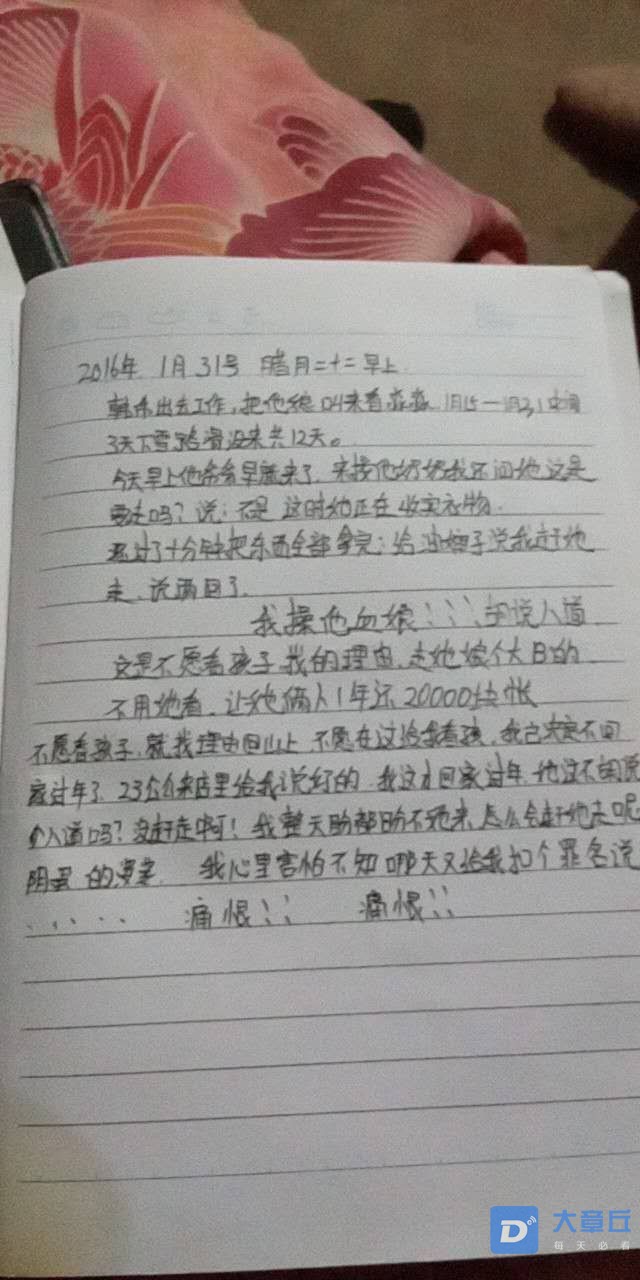 2016年 1月31号 腊月二十二早上
出去工作,把他 叫来看淼淼 1月15—1月31中间
3天下雪路滑没来共12天。
今天早上他爷爷早就来了,来接他奶奶我还问她这是
要走吗?说:不是 这时她正在收拾衣物.
又过了十分钟把东西全部拿完:给 婶子说我赶她
走,说两回了.
我操他血娘!!!胡说八道
这是不愿看孩子找的理由,走她娘个大B的
不用她看,让她俩人1年还20000块帐
不愿看孩子,就找理由回山上,不愿在这给我看孩,我已决定不回
家过年了,23 来店里给我说好的,我这才回家过年,他这不胡说
八道吗?没赶走啊!我整天盼都盼不她来,怎么会赶她走呢
阴 的 我心里害怕不知哪天又给我扣个罪名说
...... 痛恨!! 痛恨!!
大章丘
每天必看